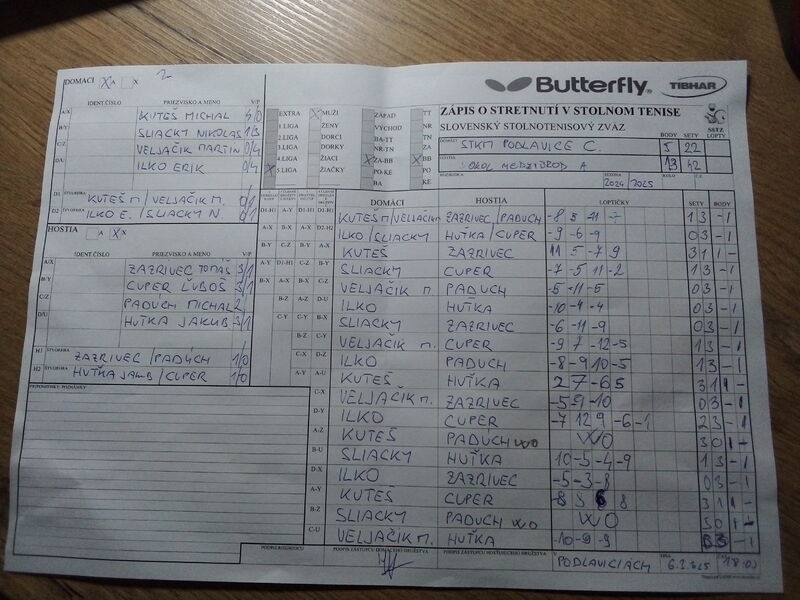 DOMÁCI A X
2
Butterfly
TIBHAR
IDENT.ČÍSLO PRIEZVISKO A MENO V/P
A/X KUTEŠ MICHAL 4/0
B/Y SLIACKY NIKOLAS 1/3
C/Z VELJAČIK MARTIN 0/4
D/U ILKO ERIK 0/4
D1 ŠTVORHRA KUTEŠ M/VELJAČIK M. 0/1
D2 ŠTVORHRA ILKO E./SLIACKY N. 0/1
EXTRA MUŽI ZÁPAD TT
1.LIGA ŽENY VÝCHOD NR
2.LIGA DORCI BA-TT TN
3.LIGA DORKY NR-TN
4.LIGA ŽIACI ZA-BB BB
5.LIGA ŽIAČKY PO-KE
BA KE
ZÁPIS O STRETNUTÍ V STOLNOM TENISE
SLOVENSKÝ STOLNOTENISOVÝ ZVÄZ
BODY SETY SSTZ LOPTY
DOMÁCI STKM PODLAVICE C. 5 22
HOSTIA OKOL MEDZIBROD A 13 42
SEZÓNA 2024/2025 KOLO
HOSTIA A X
IDENT.ČÍSLO PRIEZVISKO A MENO V/P
A/X ZAZRIVEC TOMÁŠ 3/1
B/Y CUPER ĽUBOŠ 3/1
C/Z PADUCH MICHAL 2
D/U HUŤKA JAKUB 3/1
H1 ŠTVORHRA ZAZRIVEC/PADÚCH 1/0
H2 ŠTVORHRA HUŤKA JAKUB/CUPER 1/0
PRIPOMIENKY, POZNÁMKY
DOMÁCI HOSTIA LOPTIČKY SETY BODY
KUTEŠ M/VELJAČIK M ZAZRIVEC/PADUCH 1 3 -1
ILKO/SLIACKY HUŤKA/CUPER -9 -6 -9 0 3 -1
KUTEŠ ZAZRIVEC 11 5 -7 9 3 1 1-
SLIACKY CUPER -7 -5 11 -2 1 3 -1
VELJAČIK M. PADUCH -5 -11 -5 0 3 -1
ILKO HUŤKA -10 -4 -4 0 3 -1
SLIACKY ZAZRIVEC -6 -11 -9 0 3 -1
VELJAČIK M. CUPER -9 7 -12 -5 1 3 -1
ILKO PADUCH -8 -9 10 -5 1 3 -1
KUTEŠ HUŤKA 2 7 -6 5 3 1 1-
VELJAČIK M. ZAZRIVEC -5 -9 -10 0 3 -1
ILKO CUPER -7 12 9 -6 -1 2 3 -1
KUTEŠ PADÚCH WO WO 3 0 1-
SLIACKY HUŤKA 10 -5 -4 -9 1 3 -1
ILKO ZAZRIVEC -5 -3 -8 0 3 -1
KUTEŠ CUPER -8 5 6 8 3 1 1-
SLIACKY PADUCH WO WO 3 0 1-
VELJAČIK M. HUŤKA -10 -9 -9 0 3 -1
PODPIS ROZHODCU PODPIS ZÁSTUPCU DOMÁCEHO DRUŽSTVA PODPIS ZÁSTUPCU HOSŤUJÚCEHO DRUŽSTVA V PODLAVICIACH DŇA 18:00